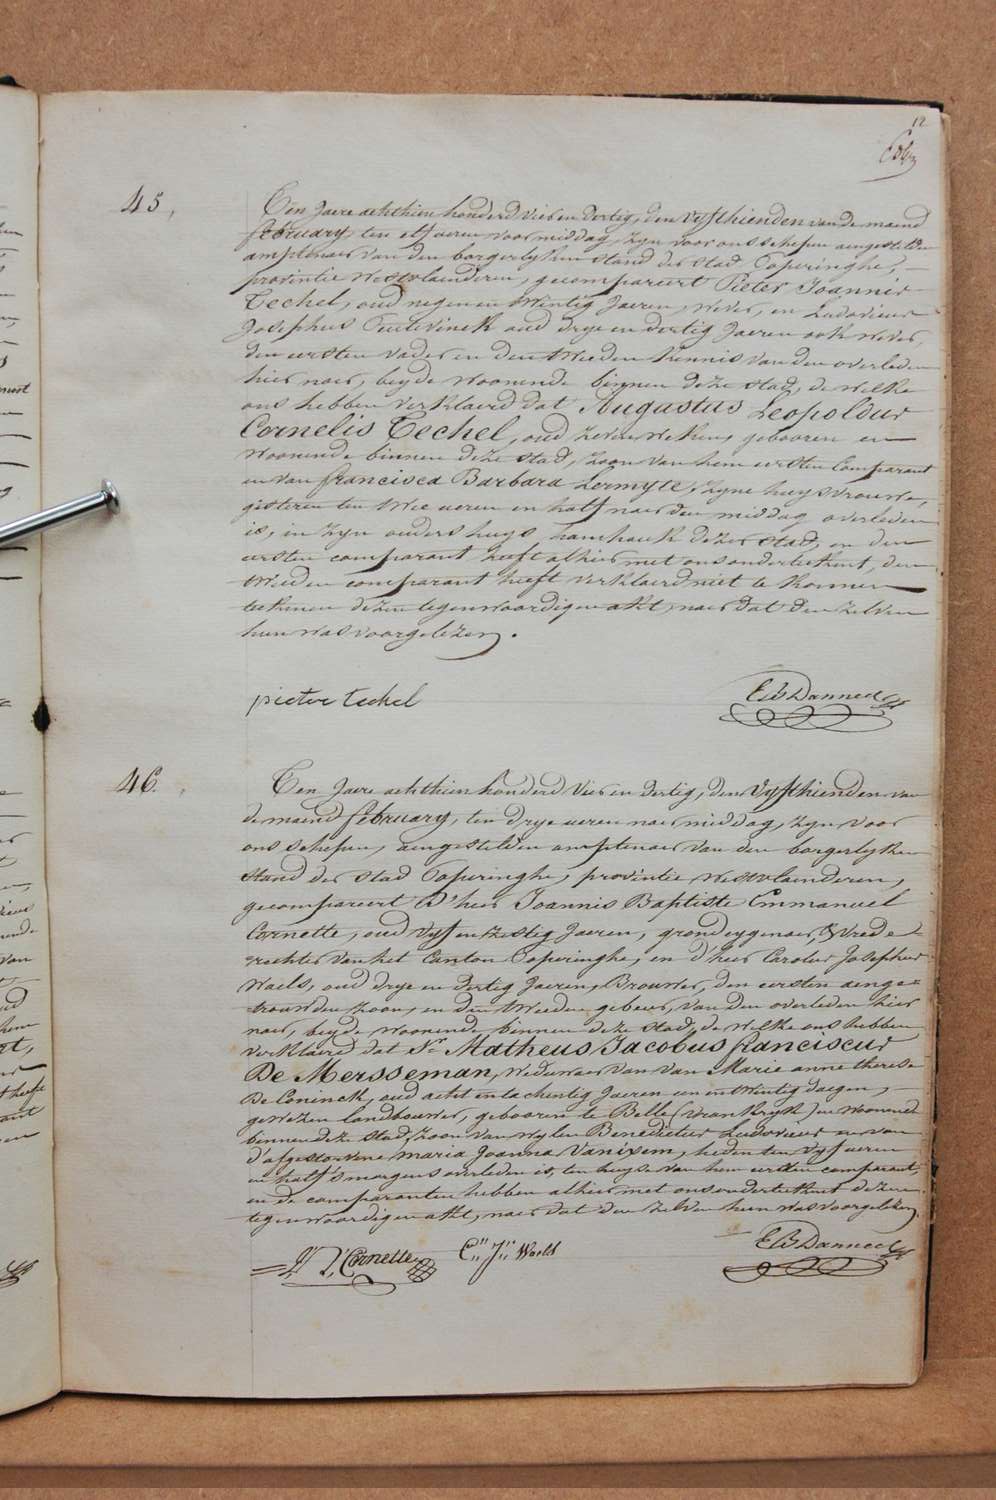 12
45,
Ten Jaere achthien honderd vier en dertig, den vyfthienden van de maend
february, ten elf ueren voor middag, zyn voor ons schepen aengestelden
amptenaer van den borgerlyken stand der stad Poperinghe,
provintie Westvlaenderen, gecompareert Pieter Joannes
Techel, oud negen en twintig Jaeren, wever, en Ludovicus
Josephus oud drye en dertig Jaeren ook wever,
den eersten vader en den tweeden kennis van den overleden
hier naer, beyde woonende binnen deze stad, de welke
ons hebben verklaerd dat Augustus Leopoldus
Cornelis Techel, oud zeven weken, gebooren en
woonende binnen deze stad, zoon van hem eersten Comparant
en van francisca Barbara Lermyte, zyne huysvrouwe,
gisteren ten twee ueren en half naer den middag overleden
is, in zyn ouders huys, hamhoek dezer stad, en den
eersten comparant heeft alhier met ons onderteekent, den
tweeden comparant heeft verklaerd niet te konnen
teekenen dezen tegenwoordigen akt, naer dat den zelven
hun was voorgelezen.
pieter techel
46.
Ten Jaere achthien honderd vier en dertig, den vyfthienden van
de maend february, ten drye ueren naer middag, zyn voor
ons schepen, aengestelden amptenaer van den borgerlyken
stand der stad Poperinghe, provintie Westvlaenderen,
gecompareert d'heer Joannis Baptiste Emmanuel
Cornette, oud vyf en zestig Jaeren, grondeygenaer, & vrede
rechter van het Canton Poperinghe, en d'heer Carolus Josephus
Waels, oud drye en dertig Jaeren, Brouwer, den eersten aenge=
trouwden zoon, en den tweeden gebeur, van den overleden hier
naer, beyde woonende binnen deze stad, de welke ons hebben
verklaerd dat Sr Matheus Jacobus franciscus
De Mersseman, weduwaer van van Marie anne therese
De Coninck, oud acht en tachentig Jaeren een en twintig daegen,
gewezen landbouwer, gebooren te Belle (vrankryk) en woonende
binnen deze stad, zoon van wylen Benedictus Ludovicus en van
d'afgestorvene maria Joanna Vanixem, heden ten vyf ueren
en half s'morgens overleden is, ten huyse van hem eersten comparant,
en de comparanten hebben alhier met ons onderteekent dezen
tegenwoordigen akt, naer dat den zelven hun was voorgelezen.
Cornette